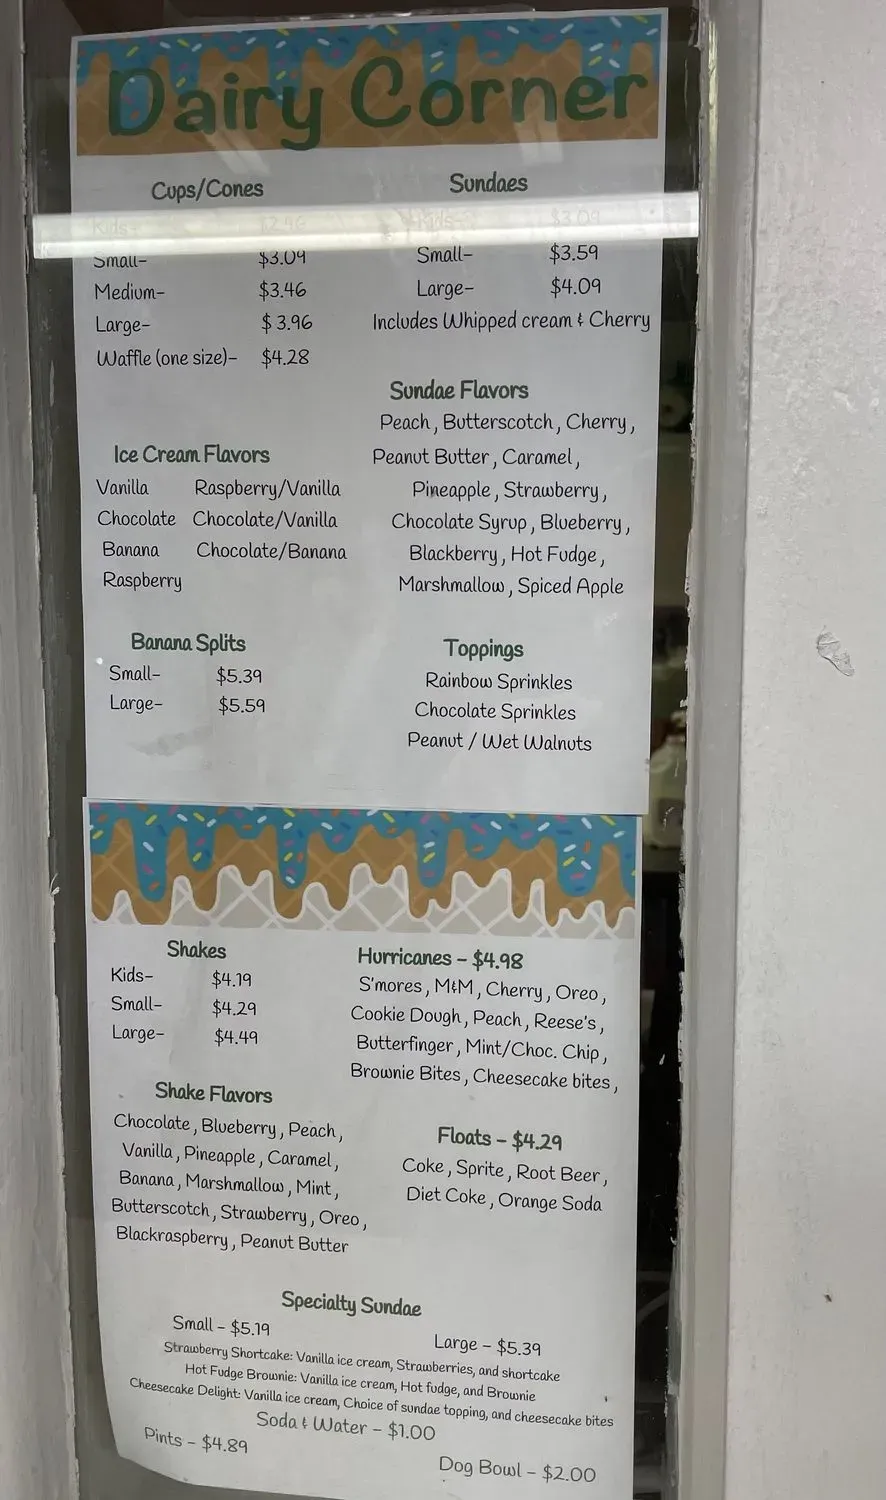 Dairy Corner
Cups/Cones
Kids- $2.46
Small- $3.09
Medium- $3.46
Large- $3.96
Waffle (one size)- $4.28
Sundaes
Kids- $3.09
Small- $3.59
Large- $4.09
Includes Whipped cream & Cherry
Ice Cream Flavors
Vanilla Raspberry/Vanilla
Chocolate Chocolate/Vanilla
Banana Chocolate/Banana
Raspberry
Sundae Flavors
Peach, Butterscotch, Cherry,
Peanut Butter, Caramel,
Pineapple, Strawberry,
Chocolate Syrup, Blueberry,
Blackberry, Hot Fudge,
Marshmallow, Spiced Apple
Banana Splits
Small- $5.39
Large- $5.59
Toppings
Rainbow Sprinkles
Chocolate Sprinkles
Peanut / Wet Walnuts
Shakes
Kids- $4.19
Small- $4.29
Large- $4.49
Hurricanes - $4.98
S'mores, M&M, Cherry, Oreo,
Cookie Dough, Peach, Reese's,
Butterfinger, Mint/Choc. Chip,
Brownie Bites, Cheesecake bites,
Shake Flavors
Chocolate, Blueberry, Peach,
Vanilla, Pineapple, Caramel,
Banana, Marshmallow, Mint,
Butterscotch, Strawberry, Oreo,
Blackraspberry, Peanut Butter
Floats - $4.29
Coke, Sprite, Root Beer,
Diet Coke, Orange Soda
Specialty Sundae
Small - $5.19 Large - $5.39
Strawberry Shortcake: Vanilla ice cream, Strawberries, and shortcake
Hot Fudge Brownie: Vanilla ice cream, Hot fudge, and Brownie
Cheesecake Delight: Vanilla ice cream, Choice of sundae topping, and cheesecake bites
Soda & Water - $1.00
Pints - $4.89
Dog Bowl - $2.00